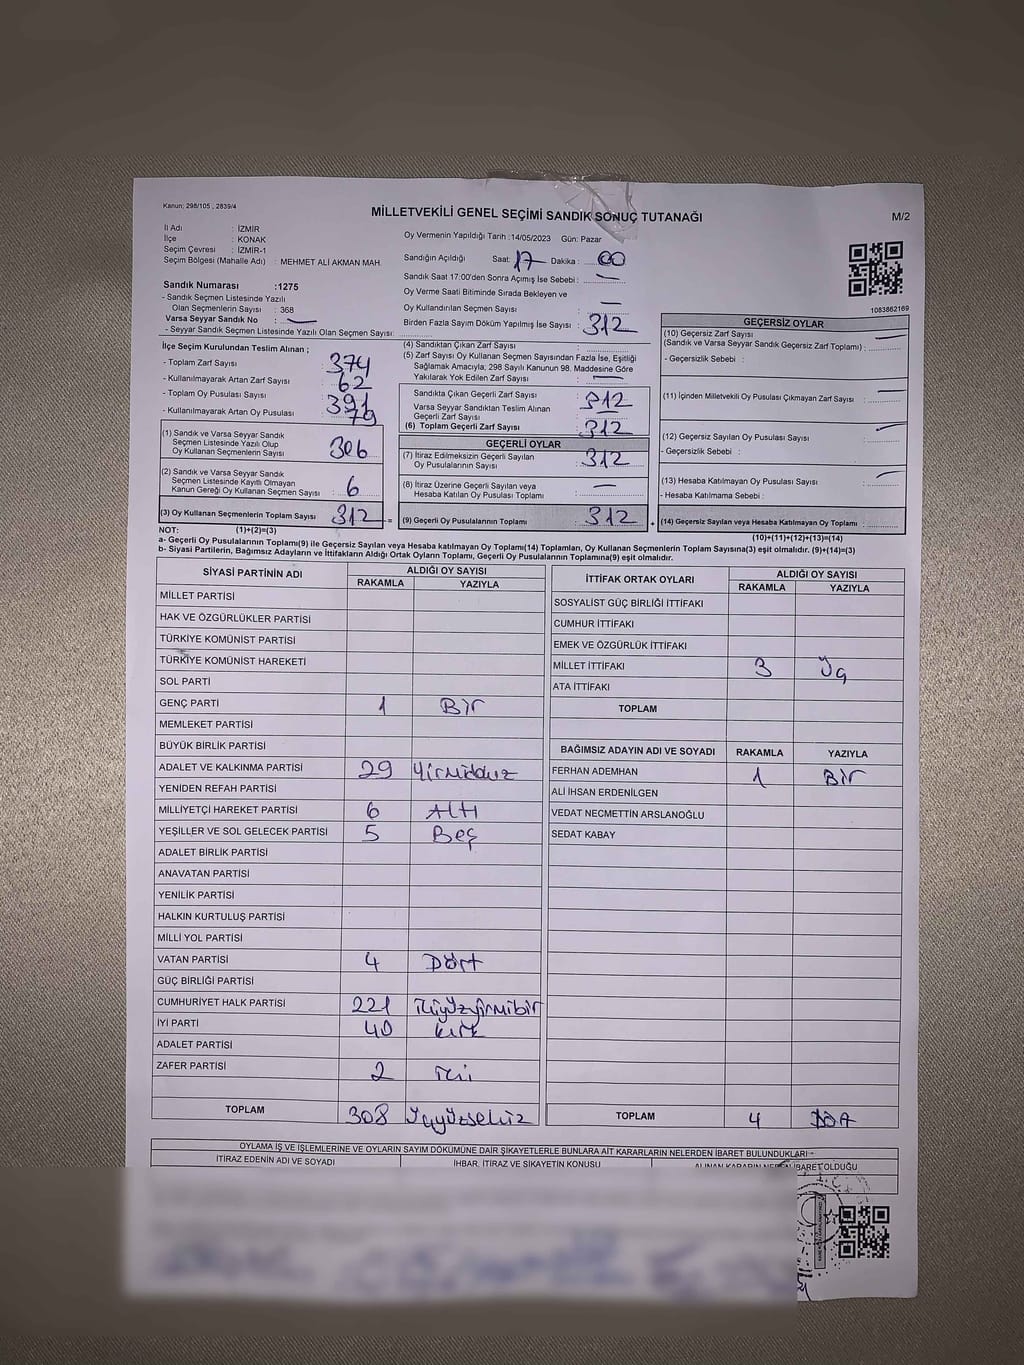 Kanun; 298/105 , 2839/4
MİLLETVEKİLİ GENEL SEÇİMİ SANDIK SONUÇ TUTANAĞI
M/2
İl Adı : İZMİR
İlçe : KONAK
Seçim Çevresi : İZMİR-1
Seçim Bölgesi (Mahalle Adı) : MEHMET ALİ AKMAN MAH.
Sandık Numarası :1275
- Sandık Seçmen Listesinde Yazılı
Olan Seçmenlerin Sayısı : 368
Varsa Seyyar Sandık No : —
- Seyyar Sandık Seçmen Listesinde Yazılı Olan Seçmen Sayısı:
Oy Vermenin Yapıldığı Tarih :14/05/2023 Gün: Pazar
Sandığın Açıldığı Saat: 17 Dakika : 00
Sandık Saat 17:00'den Sonra Açımış İse Sebebi : —
Oy Verme Saati Bitiminde Sırada Bekleyen ve
Oy Kullandırılan Seçmen Sayısı : —
Birden Fazla Sayım Döküm Yapılmış İse Sayısı : 312
1083862169
İlçe Seçim Kurulundan Teslim Alınan ;
- Toplam Zarf Sayısı : 374
- Kullanılmayarak Artan Zarf Sayısı : 62
- Toplam Oy Pusulası Sayısı : 391
- Kullanılmayarak Artan Oy Pusulası : 79
(1) Sandık ve Varsa Seyyar Sandık
Seçmen Listesinde Yazılı Olup
Oy Kullanan Seçmenlerin Sayısı : 306
(2) Sandık ve Varsa Seyyar Sandık
Seçmen Listesinde Kayıtlı Olmayan
Kanun Gereği Oy Kullanan Seçmen Sayısı : 6
(3) Oy Kullanan Seçmenlerin Toplam Sayısı : 312 =
(4) Sandıktan Çıkan Zarf Sayısı :
(5) Zarf Sayısı Oy Kullanan Seçmen Sayısından Fazla İse, Eşitliği
Sağlamak Amacıyla; 298 Sayılı Kanunun 98. Maddesine Göre
Yakılarak Yok Edilen Zarf Sayısı : —
Sandıkta Çıkan Geçerli Zarf Sayısı : 312
Varsa Seyyar Sandıktan Teslim Alınan
Geçerli Zarf Sayısı : —
(6) Toplam Geçerli Zarf Sayısı : 312
GEÇERLİ OYLAR
(7) İtiraz Edilmeksizin Geçerli Sayılan
Oy Pusulalarının Sayısı : 312
(8) İtiraz Üzerine Geçerli Sayılan veya
Hesaba Katılan Oy Pusulası Toplamı : —
(9) Geçerli Oy Pusulalarının Toplamı : 312 +
GEÇERSİZ OYLAR
(10) Geçersiz Zarf Sayısı
(Sandık ve Varsa Seyyar Sandık Geçersiz Zarf Toplamı) : —
- Geçersizlik Sebebi :
(11) İçinden Milletvekili Oy Pusulası Çıkmayan Zarf Sayısı : —
(12) Geçersiz Sayılan Oy Pusulası Sayısı : —
- Geçersizlik Sebebi :
(13) Hesaba Katılmayan Oy Pusulası Sayısı : —
- Hesaba Katılmama Sebebi :
(14) Geçersiz Sayılan veya Hesaba Katılmayan Oy Toplamı :
NOT: (1)+(2)=(3)
(10)+(11)+(12)+(13)=(14)
a- Geçerli Oy Pusulalarının Toplamı(9) ile Geçersiz Sayılan veya Hesaba katılmayan Oy Toplamı(14) Toplamları, Oy Kullanan Seçmenlerin Toplam Sayısına(3) eşit olmalıdır. (9)+(14)=(3)
b- Siyasi Partilerin, Bağımsız Adayların ve İttifakların Aldığı Ortak Oyların Toplamı, Geçerli Oy Pusulalarının Toplamına(9) eşit olmalıdır.
SİYASİ PARTİNİN ADI
ALDIĞI OY SAYISI
RAKAMLA YAZIYLA
MİLLET PARTİSİ
HAK VE ÖZGÜRLÜKLER PARTİSİ
TÜRKİYE KOMÜNİST PARTİSİ
TÜRKİYE KOMÜNİST HAREKETİ
SOL PARTİ
GENÇ PARTİ 1 Bir
MEMLEKET PARTİSİ
BÜYÜK BİRLİK PARTİSİ
ADALET VE KALKINMA PARTİSİ 29 Yirmidokuz
YENİDEN REFAH PARTİSİ
MİLLİYETÇİ HAREKET PARTİSİ 6 Altı
YEŞİLLER VE SOL GELECEK PARTİSİ 5 Beş
ADALET BİRLİK PARTİSİ
ANAVATAN PARTİSİ
YENİLİK PARTİSİ
HALKIN KURTULUŞ PARTİSİ
MİLLİ YOL PARTİSİ
VATAN PARTİSİ 4 Dört
GÜÇ BİRLİĞİ PARTİSİ
CUMHURİYET HALK PARTİSİ 221 İkiyüzyirmibir
İYİ PARTİ 40 Kırk
ADALET PARTİSİ
ZAFER PARTİSİ 2 İki
TOPLAM 308 Üçyüzsekiz
İTTİFAK ORTAK OYLARI
ALDIĞI OY SAYISI
RAKAMLA YAZIYLA
SOSYALİST GÜÇ BİRLİĞİ İTTİFAKI
CUMHUR İTTİFAKI
EMEK VE ÖZGÜRLÜK İTTİFAKI
MİLLET İTTİFAKI 3 Üç
ATA İTTİFAKI
TOPLAM
BAĞIMSIZ ADAYIN ADI VE SOYADI RAKAMLA YAZIYLA
FERHAN ADEMHAN 1 Bir
ALİ İHSAN ERDENİLGEN
VEDAT NECMETTİN ARSLANOĞLU
SEDAT KABAY
TOPLAM 4
OYLAMA İŞ VE İŞLEMLERİNE VE OYLARIN SAYIM DÖKÜMÜNE DAİR ŞİKAYETLERLE BUNLARA AİT KARARLARIN NELERDEN İBARET BULUNDUKLARI
İTİRAZ EDENİN ADI VE SOYADI
İHBAR, İTİRAZ VE ŞİKAYETİN KONUSU
ALINAN KARARIN NEDEN İBARET OLDUĞU